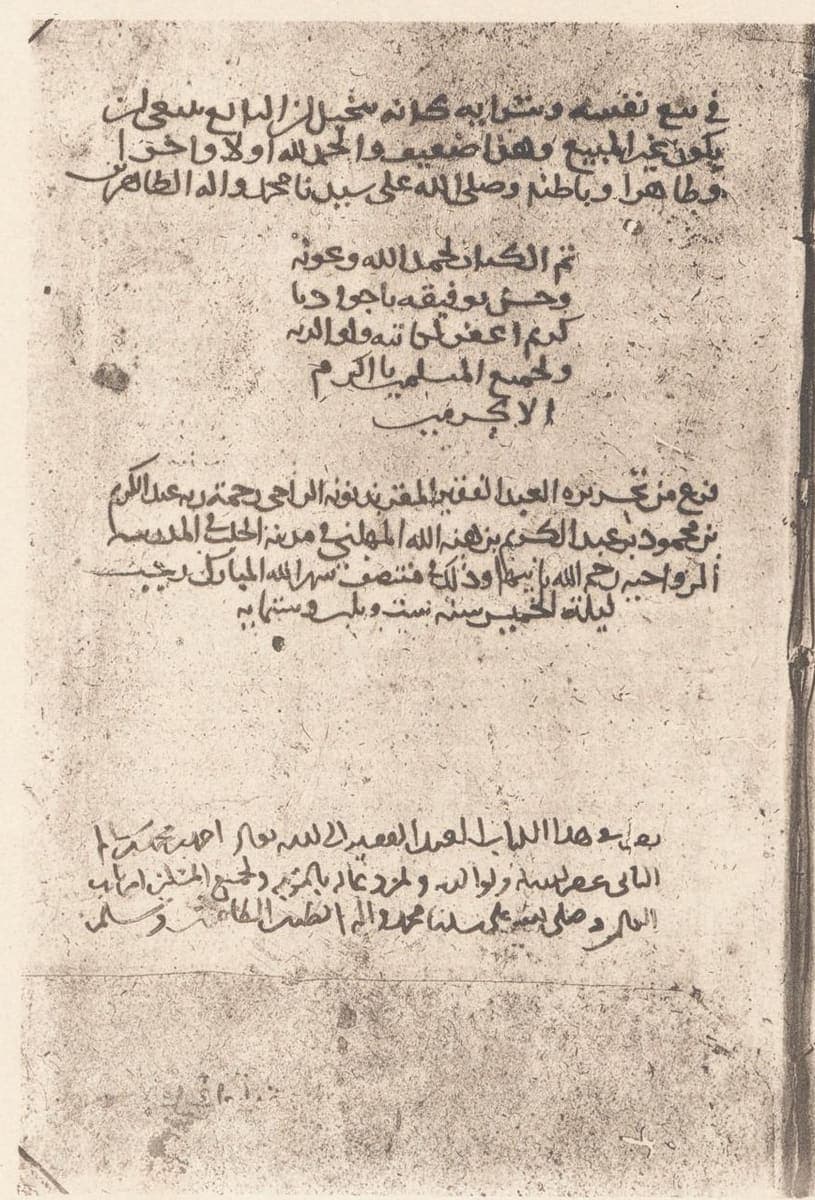 في بيع نفسه وشرايه كانه يتخيل ان البايع ينبغي ان
يكون غير المبيع وهذا ضعيف والحمد لله اولا واخرا
وظاهرا وباطنا وصلى الله على سيدنا محمد واله الطاهرين
تم الكتاب بحمد الله وعونه
وحسن توفيقه يا جواد يا
كريم اغفر لكاتبه ولوالديه
ولجميع المسلمين يا اكرم
الاكرمين
فرغ من تحريره العبد الفقير المقر بذنوبه الراجي رحمة ربه عبد الكريم
بن محمود بن عبد الكريم بن هبة الله في مدينة الحلة في المدرسة
رحم الله بانيها وذلك في منتصف شهر الله المبارك رجب
ليلة الخميس سنة ست وستمايه
في هذا الكتاب العبد الفقير الى الله تعالى احمد بن محمد
غفر الله له ولوالديه ولمن دعا له بالتوبة ولجميع المسلمين امين رب
العالمين وصلى الله على سيدنا محمد واله الطيبين الطاهرين وسلم